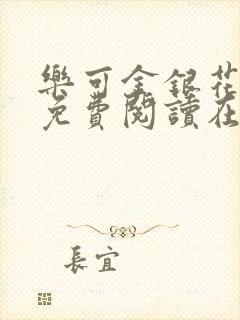 樂可金銀花
免費閱讀在
長宜